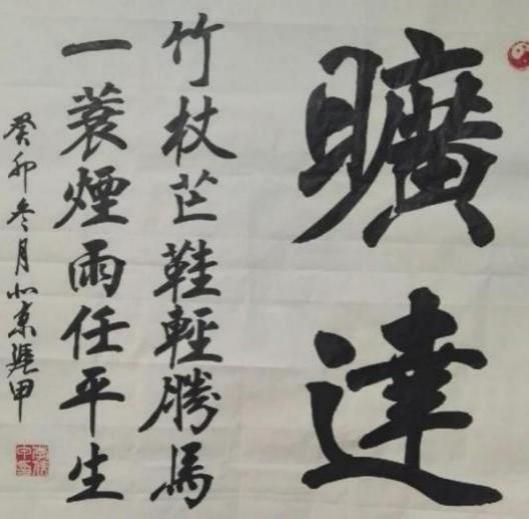 曠達
竹杖芒鞋輕勝馬
一蓑煙雨任平生
癸卯冬月北京延甲